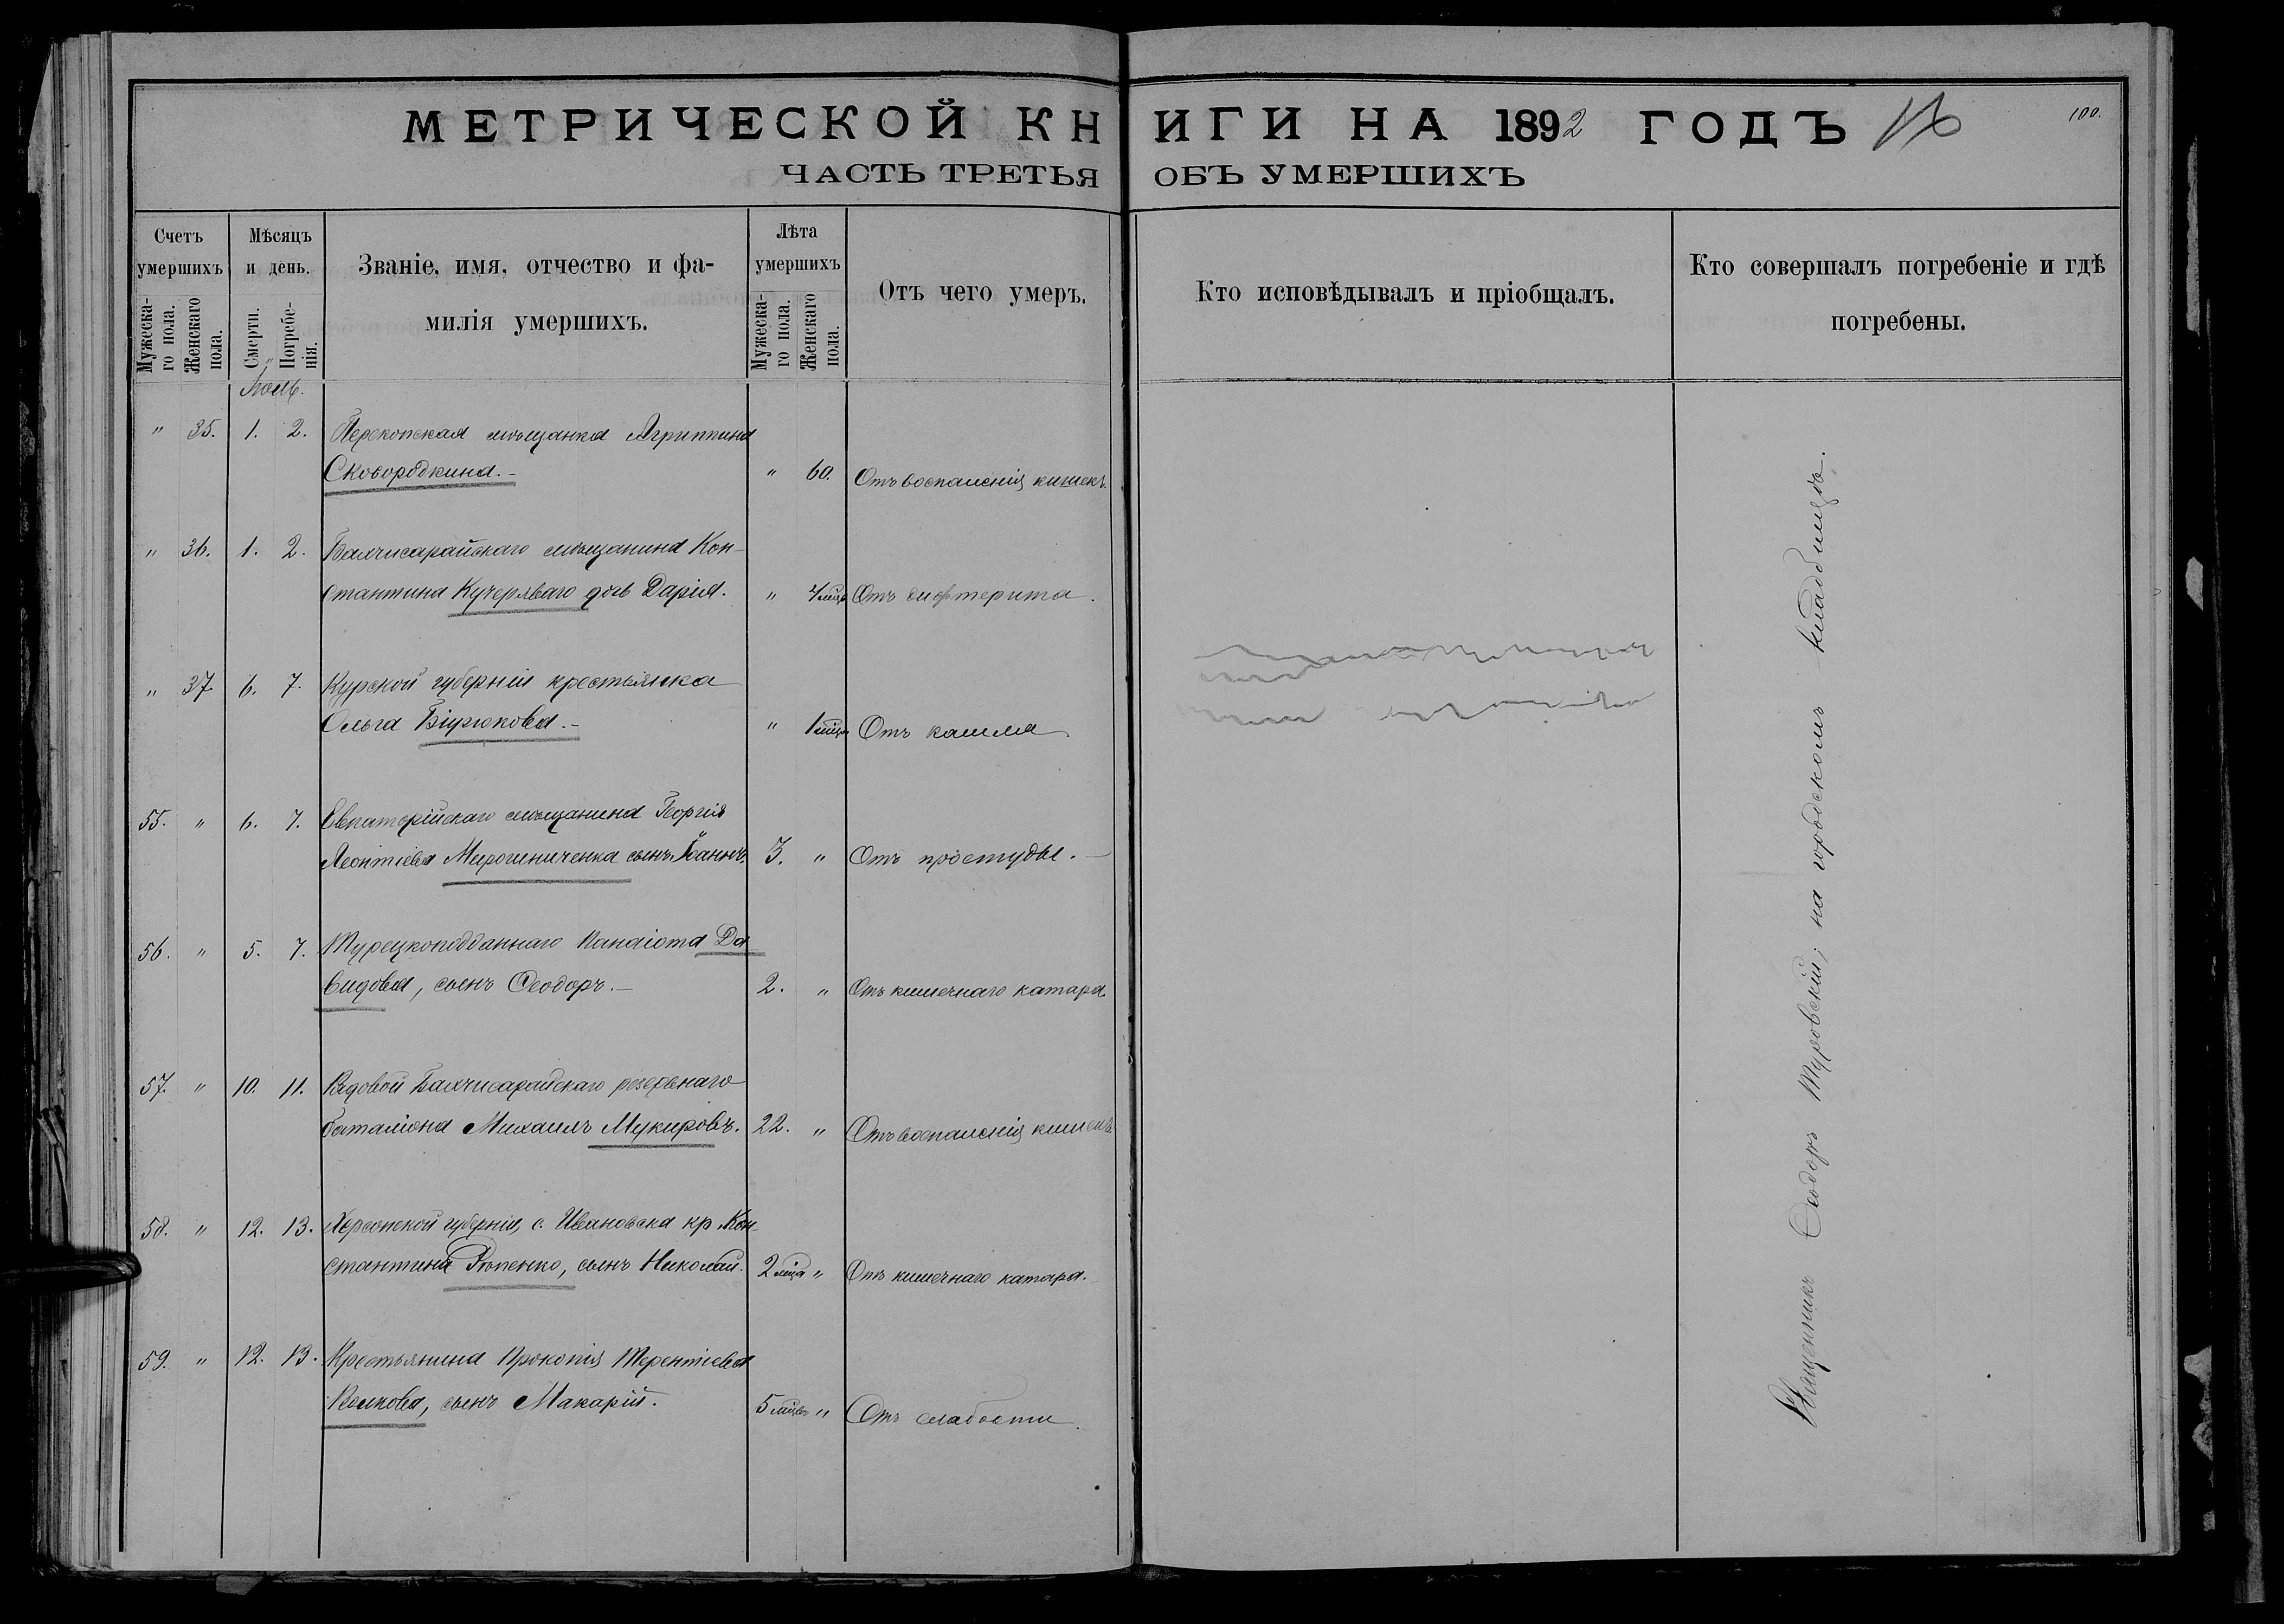 МЕТРИЧЕСКОЙ КНИГИ НА 1892 ГОДЪ
100.
ЧАСТЬ ТРЕТЬЯ ОБЪ УМЕРШИХЪ
Счетъ умершихъ
Мужеска-го пола.
Женскаго пола.
Мѣсяцъ и день.
Смерти.
Погребе-нія.
Званіе, имя, отчество и фа-
милія умершихъ.
Лѣта умершихъ
Мужеска-го пола.
Женскаго пола.
Отъ чего умеръ.
Кто исповѣдывалъ и пріобщалъ.
Кто совершалъ погребеніе и гдѣ
погребены.
" 35. 1. 2. Перекопская мѣщанка Агриппина
Сковородкина.- " 60. Отъ воспаленія кишекъ.
" 36. 1. 2. Бахчисарайскаго мѣщанина Кон-
стантина Кучеряваго дочь Дарія. " Отъ дифтерита.
" 37. 6. 7. Курской губерніи крестьянка
Ольга Бирюкова.- " Отъ кашля
55. " 6. 7. Евпаторійскаго мѣщанина Георгія
Леонтіева Мирошниченка сынъ Іоаннъ. 3. " Отъ простуды.-
56. " 5. 7. Турецкоподданнаго Панаіота Да
видова, сынъ Ѳеодоръ.- 2. " Отъ кишечнаго катара.
57. " 10. 11. Рядовой Бахчисарайскаго резервнаго
баталіона Михаилъ Мукировъ. 22. " Отъ воспаленія кишекъ
58. " 12. 13. Херсонской губерніи, с. Ивановска кр. Кон-
стантина сынъ Николай. 2 мѣса " Отъ кишечнаго катара.
59. " 12. 13. Крестьянина Прокопія Терентіева
Волкова, сынъ Макарій. 5 мѣсц. " Отъ слабости.
Священникъ Ѳеодоръ Муровскій; на городскомъ кладбищѣ.